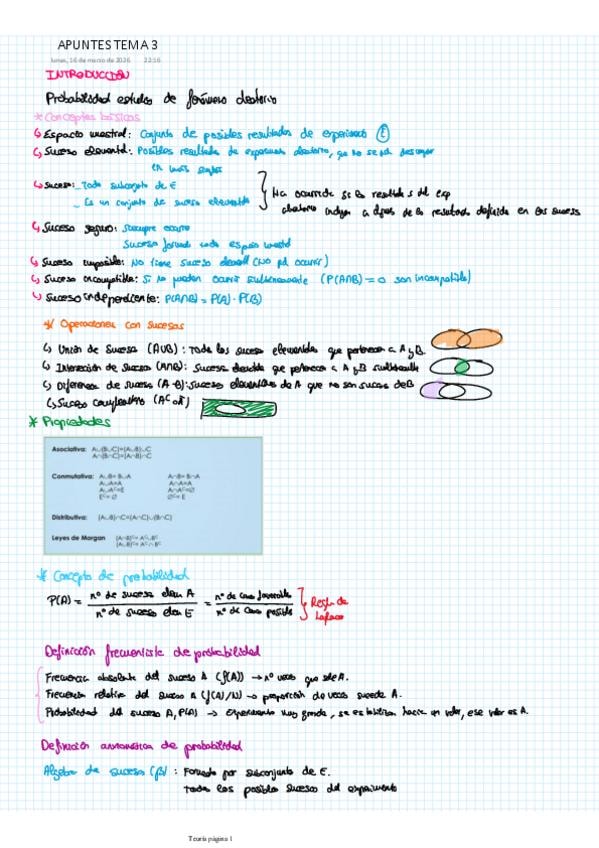 APUNTES TEMA 3
lunes, 16 de marzo de 2026 22:16
INTRODUCCIÓN
Probabilidad estudia de fenómeno aleatorio
* Conceptos básicos
↳ Espacio muestral: Conjunto de posibles resultados de experimento (E)
↳ Suceso elemental: Posibles resultados de experimento aleatorio, que no se pd descomponer
en más simples
↳ Suceso: - Todo subconjunto de E
- Es un conjunto de sucesos elementales
Ha ocurrido si los resultados del exp
aleatorio incluyen a de los resultados definidos en los sucesos
↳ Suceso seguro: siempre ocurre
Suceso formado todo espacio muestral
↳ Suceso imposible: No tiene suceso elemental (No pd ocurrir)
↳ Suceso incompatible: Si no pueden ocurrir simultáneamente (P(A∩B) = 0 son incompatible)
↳ Suceso independiente: P(A∩B) = P(A) · P(B)
* Operaciones con sucesos
↳ Unión de Sucesos (A∪B): Todos los sucesos elementales que pertenecen a A y B.
↳ Intersección de sucesos (A∩B): Sucesos elementales que pertenecen a A y B simultáneamente
↳ Diferencia de sucesos (A-B): Sucesos elementales de A que no son sucesos de B
↳ Suceso complementario (Aᶜ o Ā)
* Propiedades
Asociativa: A∪(B∪C)=(A∪B)∪C
A∩(B∩C)=(A∩B)∩C
Conmutativa: A∪B= B∪A A∩B= B∩A
A∪A=A A∩A=A
A∪Aᶜ=E A∩Aᶜ=∅
Eᶜ= ∅ ∅ᶜ= E
Distributiva: (A∪B)∩C=(A∩C)∪(B∩C)
Leyes de Morgan (A∩B)ᶜ= Aᶜ∪Bᶜ
(A∪B)ᶜ= Aᶜ∩Bᶜ
* Concepto de probabilidad
P(A) = nº de sucesos elem A / nº de sucesos elem E = nº de casos favorables / nº de casos posibles
Regla de
Laplace
Definición frecuentista de probabilidad
Frecuencia absoluta del suceso A (f(A)) → nº veces que sale A.
Frecuencia relativa del suceso A (f(A)/N) → proporción de veces sucede A.
Probabilidad del suceso A, P(A) → Experimento muy grande, se estabiliza hacia un valor, ese valor es A.
Definición axiomática de probabilidad
Álgebra de sucesos (β): Formado por subconjunto de E.
Todos los posibles sucesos del experimento
Teoría página 1